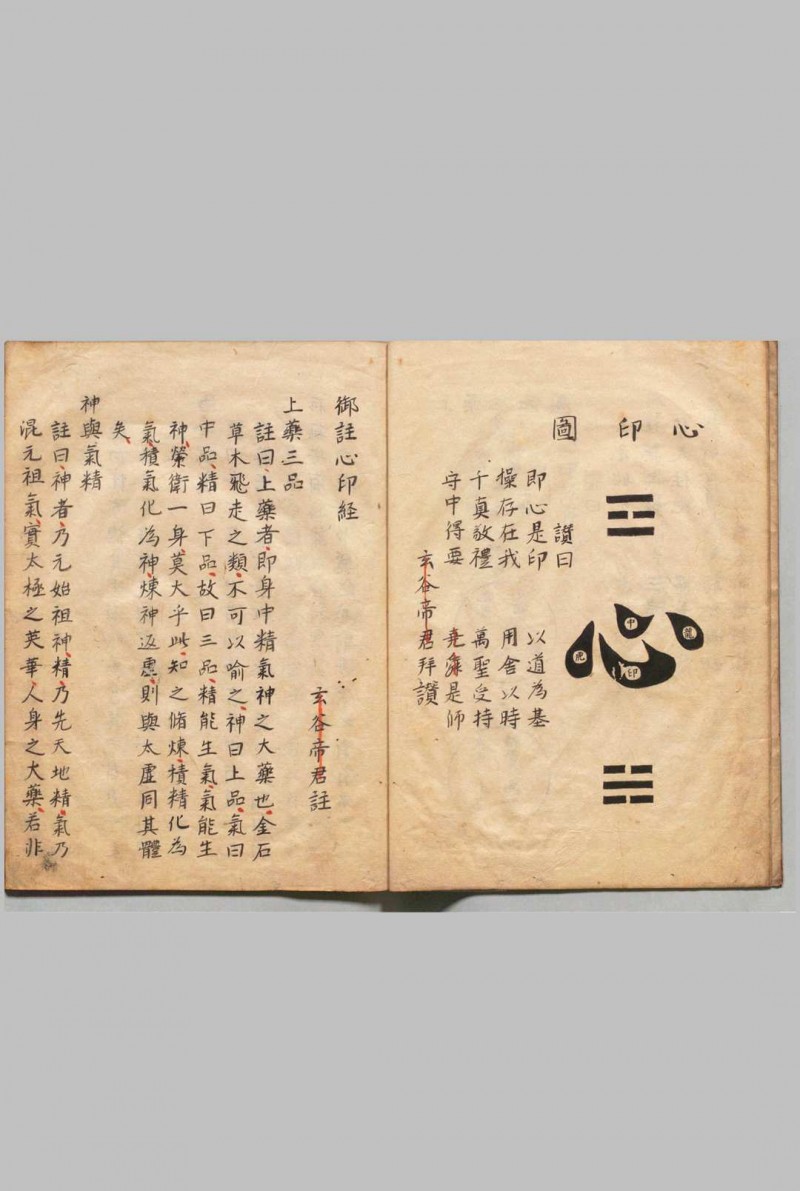 心印圖
龍
中
印
虎
讚曰
即心是印 以道為基
操存在我 用舍以時
千真敬禮 萬聖受持
守中得要 堯舜是師
玄谷帝君拜讚
御註心印経
玄谷帝君註
上藥三品
註曰上藥者即身中精氣神之大藥也金石
草木飛走之類不可以喻之神曰上品氣曰
中品精曰下品故曰三品精能生氣氣能生
神榮衛一身莫大乎此知之脩煉積精化為
氣積氣化為神煉神返虛則與太虛同其體
矣
神與氣精
註曰神者乃元始祖神精乃先天地精氣乃
混元祖氣實太極之英華人身之大藥若非